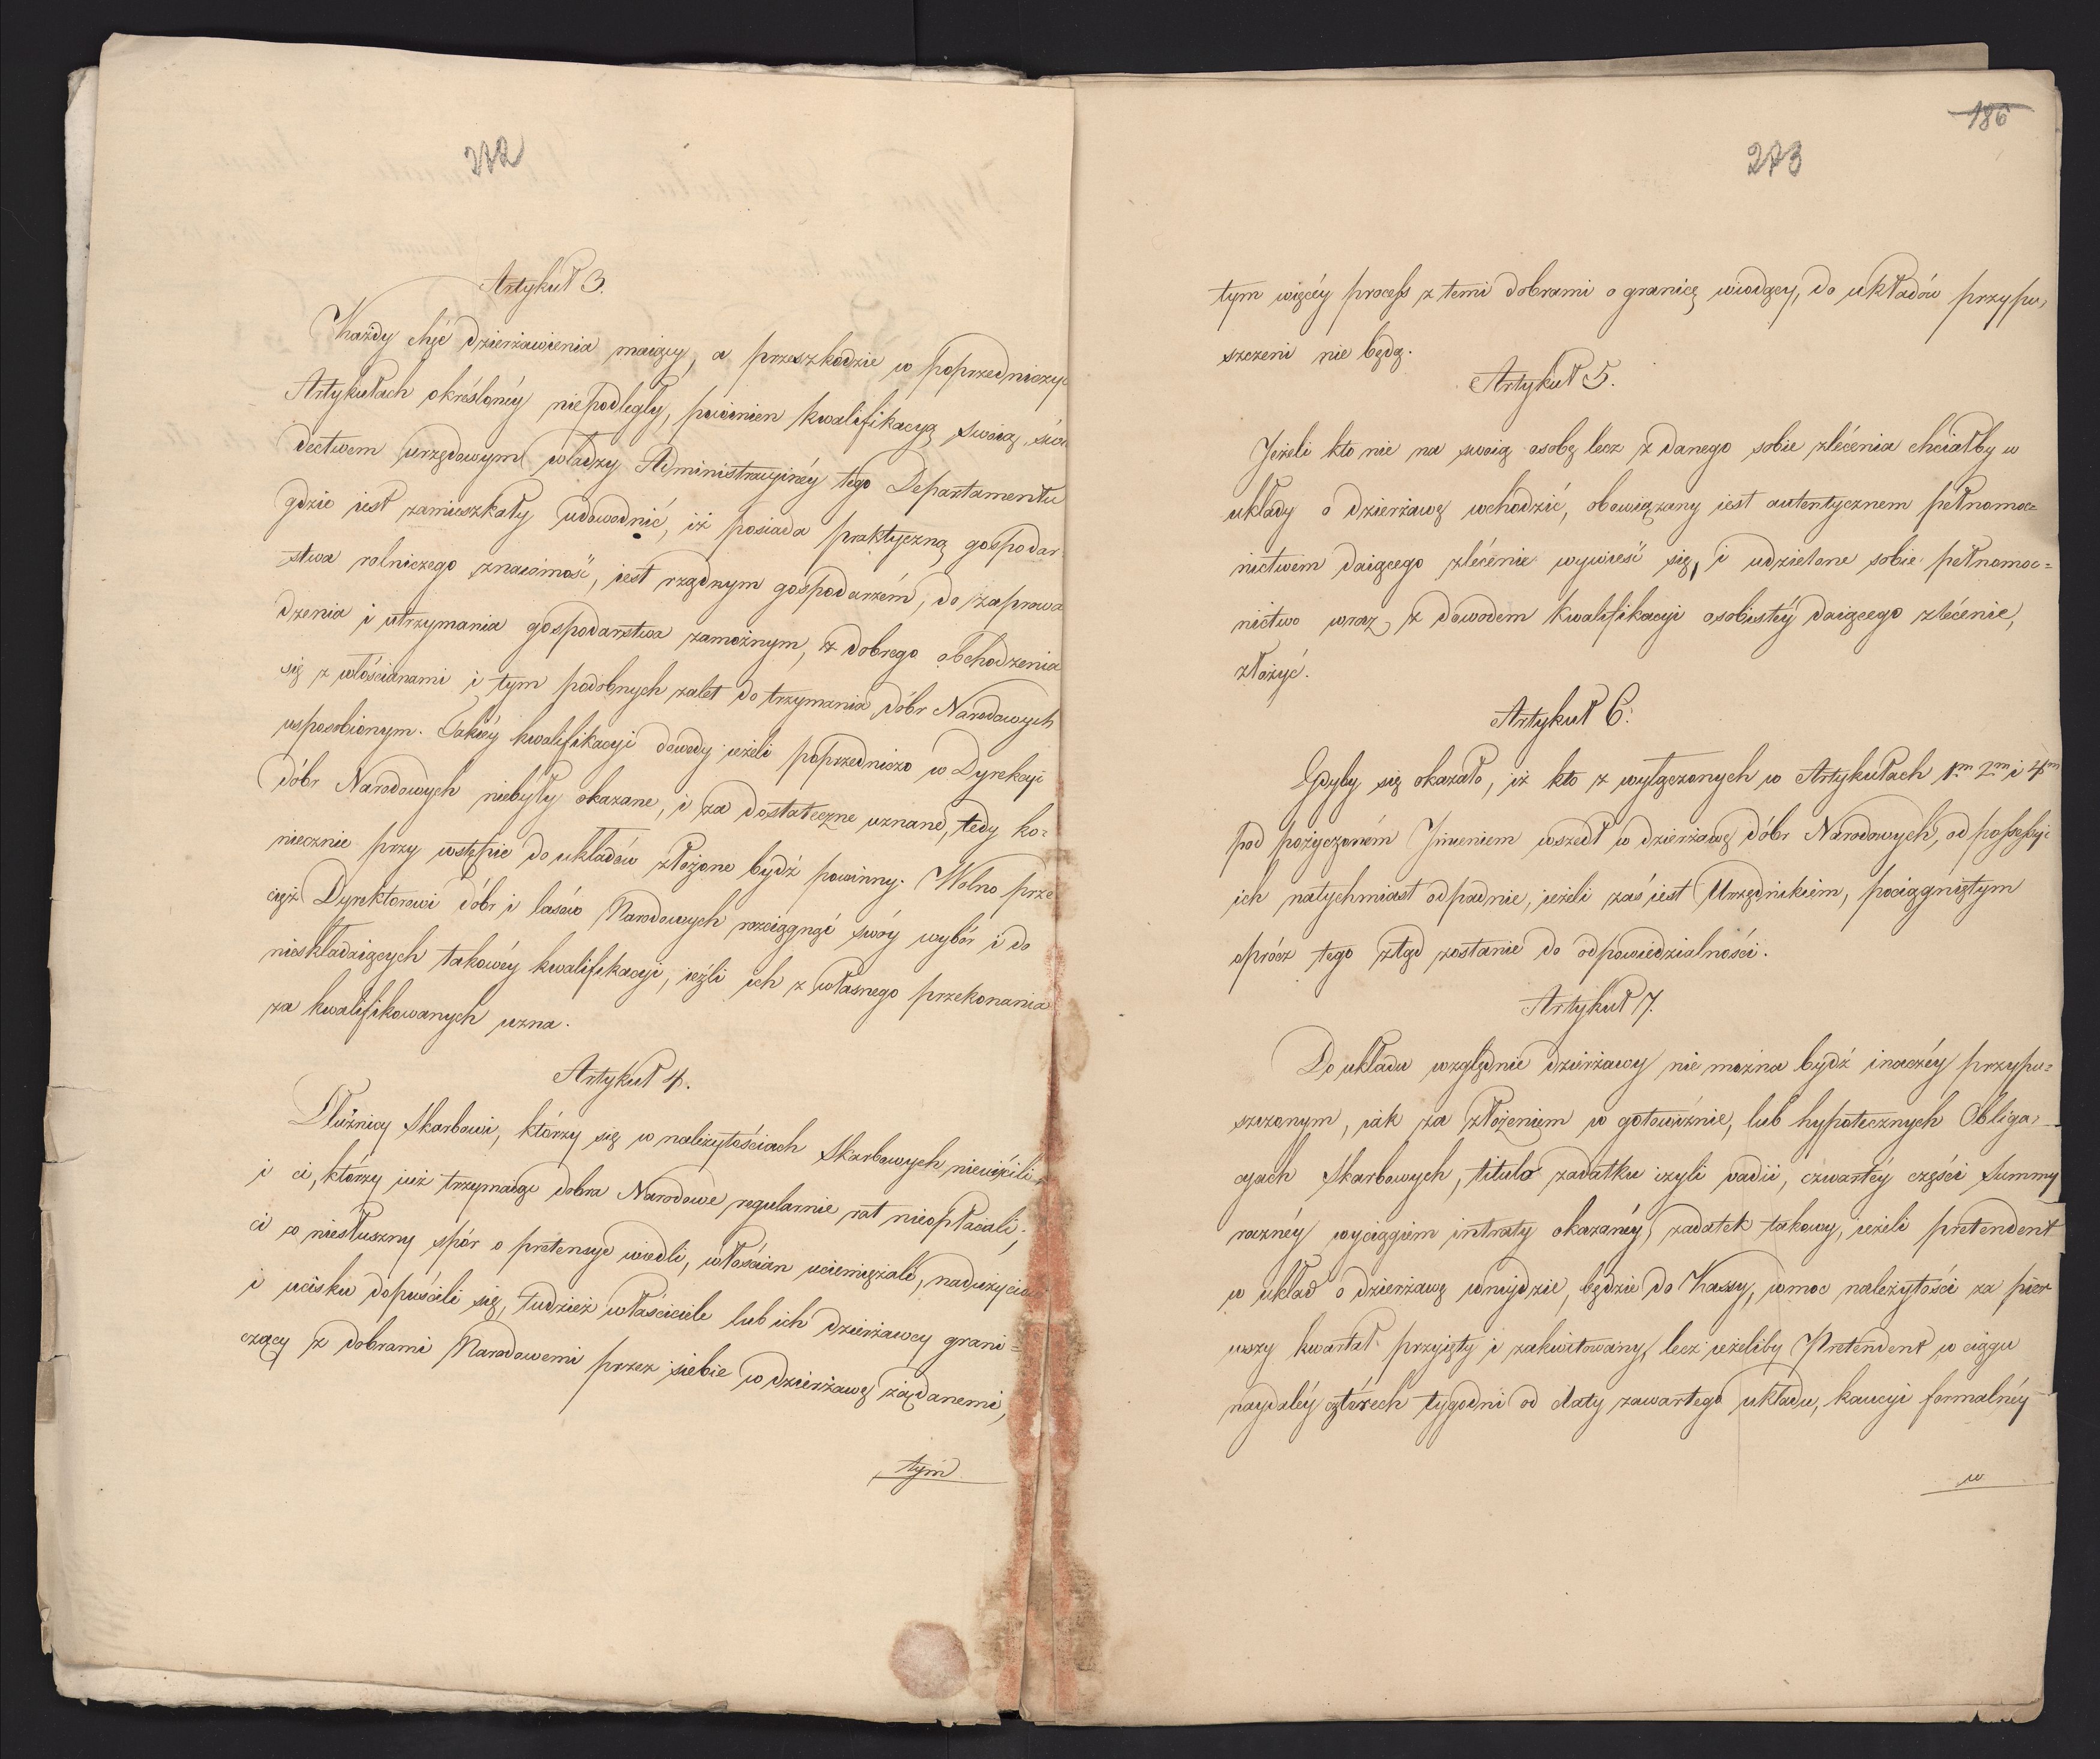 272
Artykuł 3.
Każdy chęć dzierżawienia maiący, a przeszkodzie w poprzedniczych
Artykułach określonéy niepodległy, powinien kwalifikacyą swoią, świa
dectwem urzędowym władzy Administracyinéy tego Departamentu
gdzie iest zamieszkały udowodnić, iż posiada praktyczną gospodar
stwa rolniczego znaiomość, iest rządnym gospodarzém, do zaprowa
dzenia i utrzymania gospodarstwa zamożnym, z dobrego obchodzenia
się z włościanami i tym podobnych zalet do trzymania dóbr Narodowych
usposobionym. Takiéy kwalifikacyi dowody ieżeli poprzedniczo w Dyrekcyi
dóbr Narodowych niebyły okazane, i za dostateczne uznane, tedy ko=
niecznie przy wstępie do układów złożone bydź powinny. Wolno prze
cięż Dyrektorowi dóbr i lasów Narodowych rozciągnąć swóy wybór i do
nieskładaiących takowéy kwalifikacyi, ieźli ich z własnego przekonania
za kwalifikowanych uzna.
Artykuł 4.
Dłużnicy Skarbowi, którzy się w należytościach Skarbowych nieuiścili,
i ci, którzy iuż trzymaiąc dobra Narodowe regularnie rat nieopłacali,
ci co niesłuszny spór o pretensye wiedli, włościan uciemiężali, nadużycia
i ucisku dopuścili się, tudzież właściciele lub ich dzierżawcy grani=
czący z dobrami Narodowemi przez siebie w dzierżawę żądanemi,
tym
186
273
tym więcéy process z temi dobrami o granicę wiodący, do układów przypu=
szczeni nie będą.
Artykuł 5.
Jeżeli kto nie na swoią osobę lecz z danego sobie zlécenia chciałby w
układy o dzierżawę wchodzić, obowiązany iest autentycznem pełnomoc=
nictwem daiącego zlécenie wywieść się, i udzielone sobie pełnomoc=
nictwo wraz z dowodem kwalifikacyi osobistéy daiącego zlécenie,
złożyć.
Artykuł 6.
Gdyby się okazało, iż kto z wyłączonych w Artykułach 1m 2m i 4m
pod pożyczoném Jmieniem wszedł w dzierżawę dóbr Narodowych, od possessyi
ich natychmiast odpadnie, ieżeli zaś iest Urzędnikiem, pociągniętym
oprócz tego ztąd zostanie do odpowiedzialności.
Artykuł 7.
Do układu względnie dzierżawy nie można bydź inaczéy przypu=
szczonym, iak za złożeniem w gotowiźnie, lub hypotecznych Obliga=
cyach Skarbowych, titulo zadatku czyli vadii, czwartéy części Summy
roczney wyciągiem intraty okazanéy, zadatek takowy, ieżeli pretendent
w układ o dzierżawę wnijdzie, będzie do Kassy, wmoc należytości za pier
wszy kwartał przyięty i zakwitowany, lecz ieżeliby Pretendent w ciągu
naydaléy cztérech tygodni od daty zawartego układu, kaucyi formalnéy
w